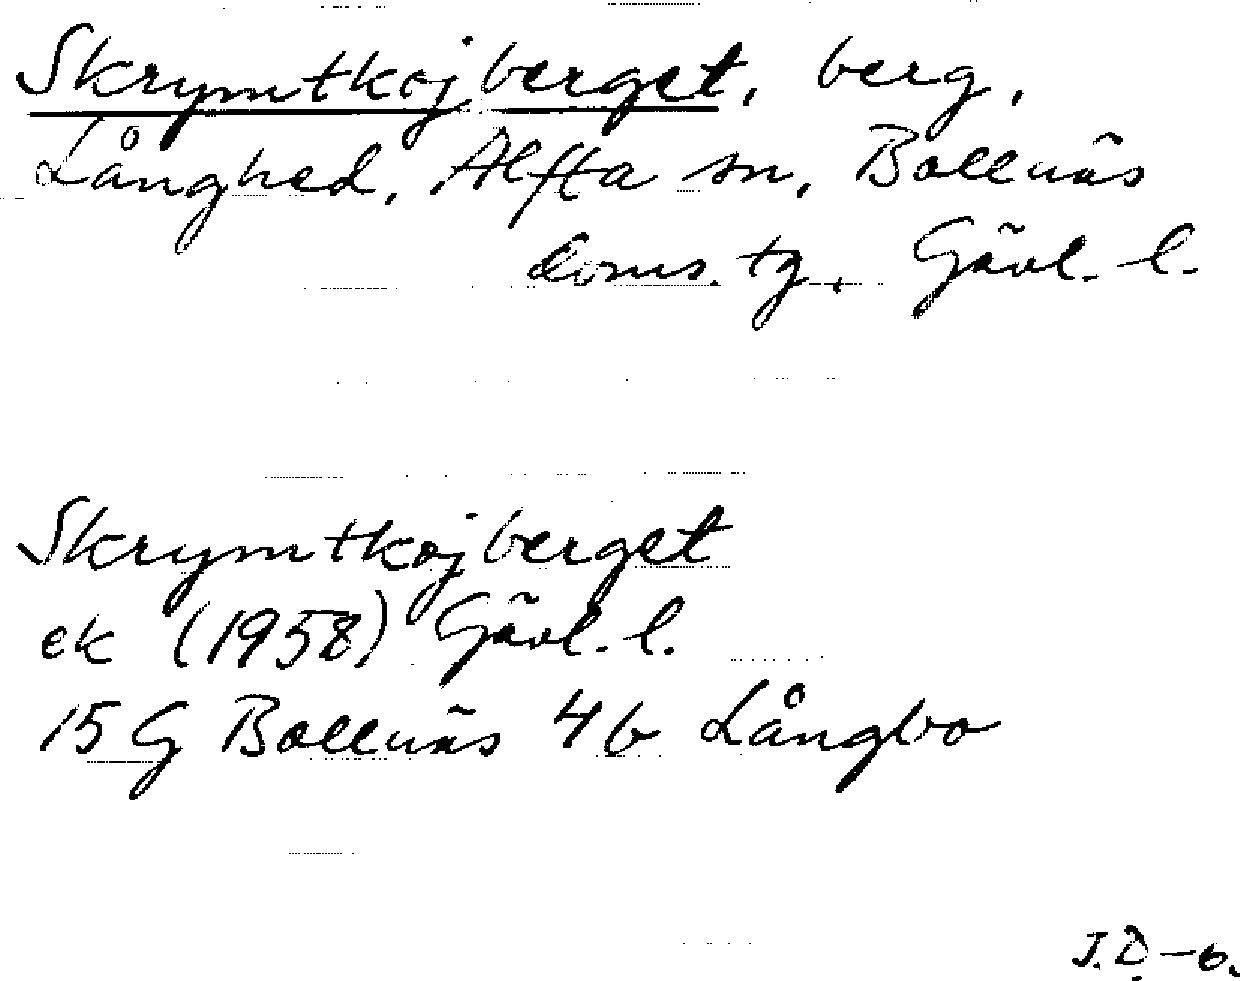 Skrymtkojberget, berg,
Långhed, Alfta sn, Bollnäs
doms. tg, Gävl. l.
Skrymtkojberget
ek (1958) Gävl. l.
15 G Bollnäs 4b Långbo
J.D-6.